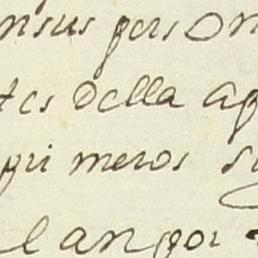 nsus per son
tes della ap
qui meros su
l an por